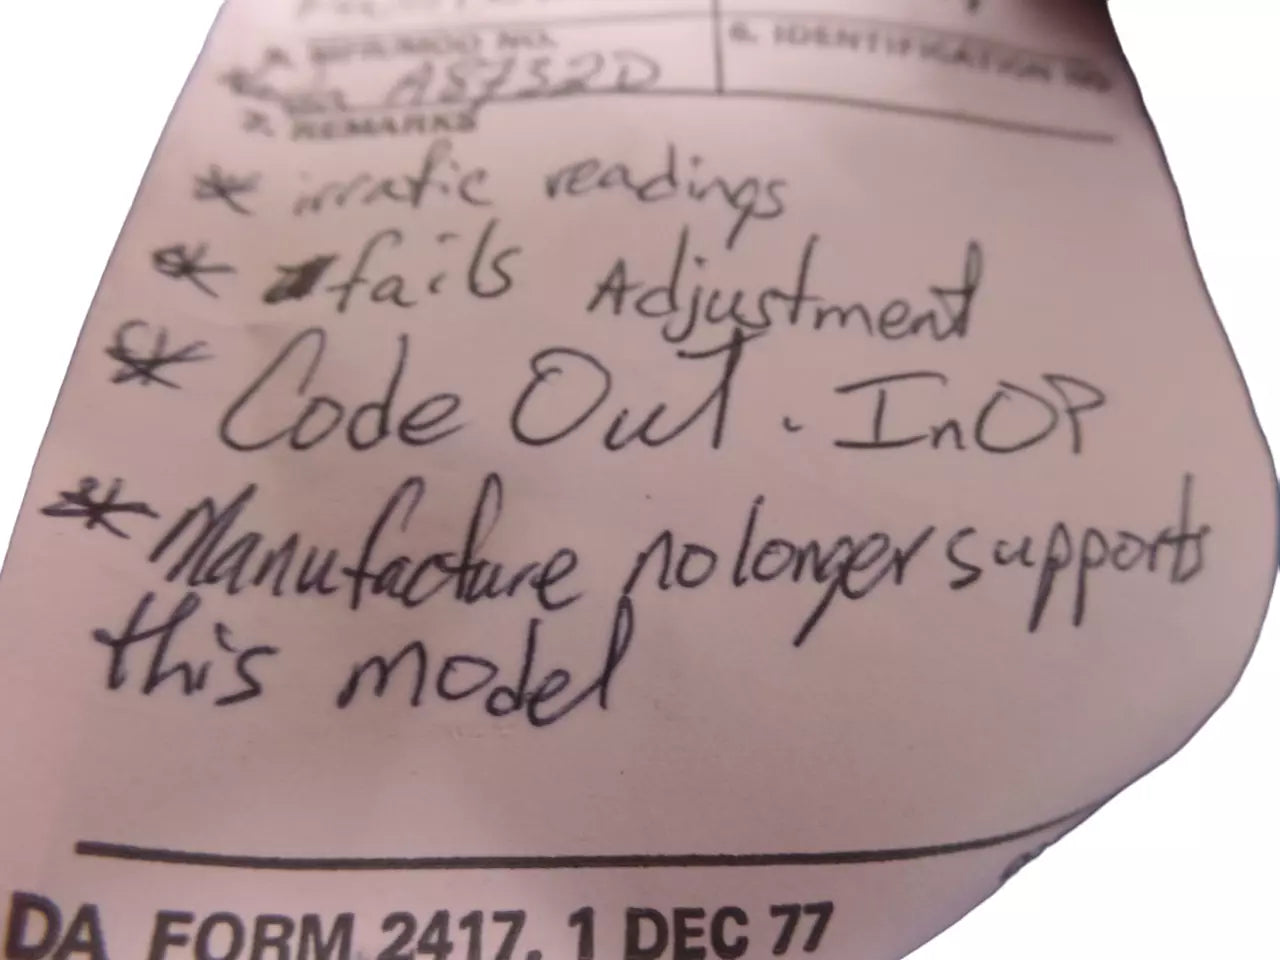 6. IDENTIFICATION NO
A8752D
7. REMARKS
* irratic readings
* fails Adjustment
* Code Out. InOP
* Manufacture no longer supports
this model
DA FORM 2417, 1 DEC 77